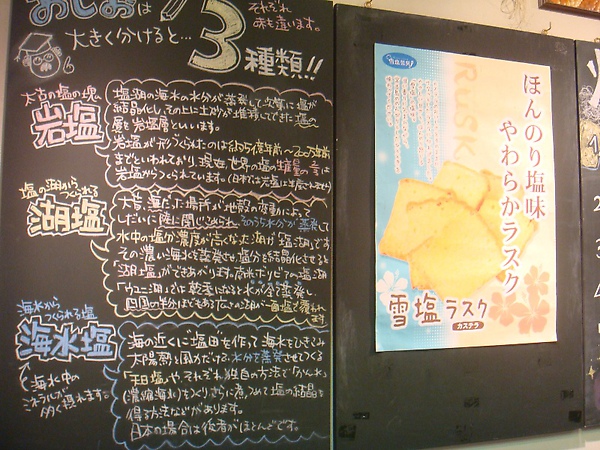 おしおは
それぞれ
味も違います。
大きく分けると…
3種類!!
太古の塩の塊
岩塩
塩湖の海水の水分が蒸発して次第に塩が
結晶化し、その上に土砂が堆積してできた塩の
層を岩塩層といいます。
までといわれており、現在、世界の塩の生産量の
岩塩からつくられています。(日本では岩塩は
塩の湖から
つくられる
湖塩
大昔、海だった場所が地殻の変動によって
しだいに陸に閉じ込められ、そのうち水分が蒸発して
水中の塩分濃度が高くなった湖が「塩湖」です
その濃い海水を蒸発させ、塩分を結晶化させると
「湖塩」ができあがります。南米ボリビアの塩湖
「ウユニ湖」では乾季になると水が全て蒸発し、
四国の約
ます
海水から
つくられる塩
海水塩
海水中の
ミネラルが
多く摂れます。
海の近くに塩田を作って海水をひきこみ
太陽熱と風力だけで水分を蒸発させてつくる
「天日塩」や、それぞれ独自の方法で「かん水」
(濃縮海水)をつくり、さらに煮つめて塩の結晶を
得る方法などがあります。
日本の場合は後者がほとんどです。
RUSK
ほんのり塩味
やわらかラスク
雪塩ラスク
カステラ